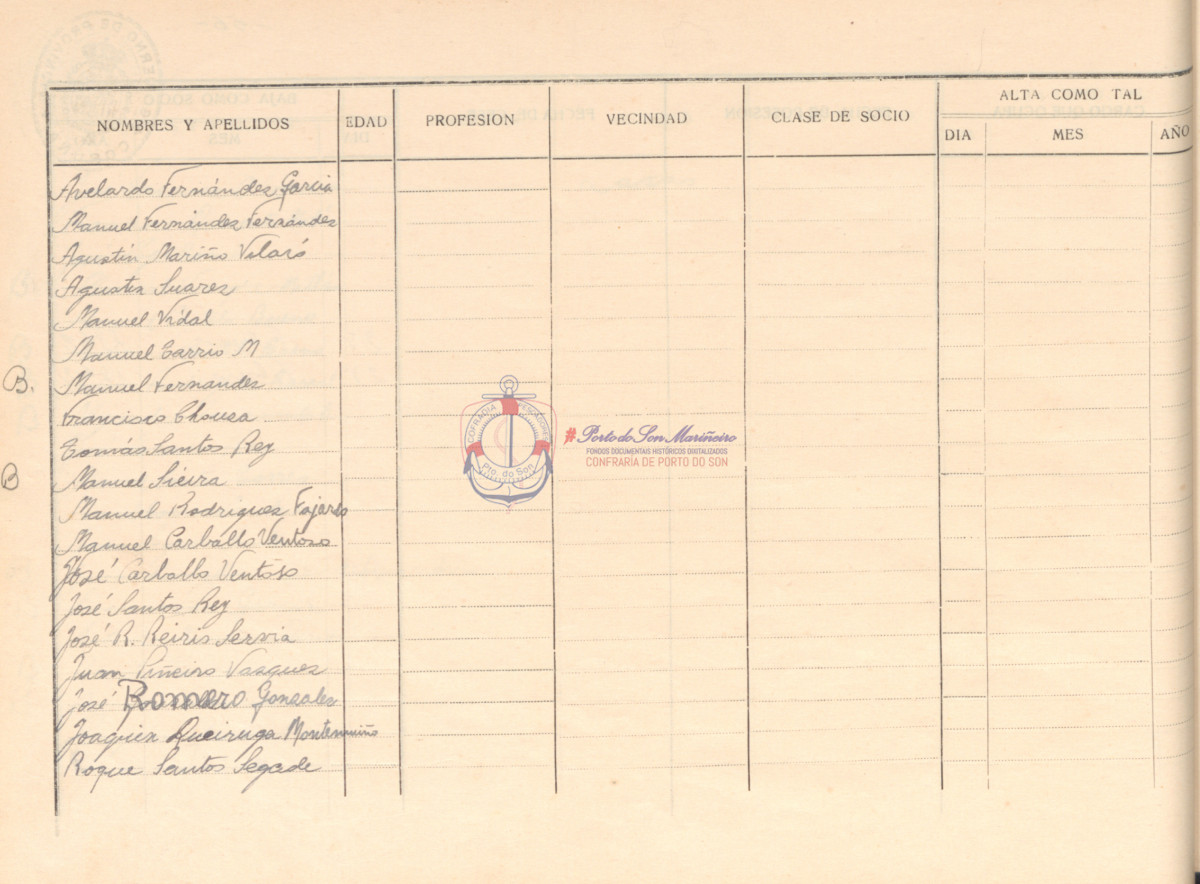 NOMBRES Y APELLIDOS EDAD PROFESION VECINDAD CLASE DE SOCIO ALTA COMO TAL
DIA MES AÑO
Avelardo Fernández Garcia
Manuel Fernández Fernández
Agustin Mariño Vilaró
Agustin Suarez
Manuel Vidal
Manuel Carrio M
B. Manuel Fernandez
Francisco Chousa
Tomás Santos Rey
B Manuel Sieira
Manuel Rodriguez Fajardo
Manuel Carballo Ventoso
José Carballo Ventoso
José Santos Rey
José R. Reiris Servia
Juan Piñeiro Vasquez
José Romero Gonzalez
Joaquin Queiruga Montemuiño
Roque Santos Segade
COFRADIA PESCADORES
Pto. do Son
#Porto do Son Mariñeiro
FONDOS DOCUMENTAIS HISTÓRICOS DIGITALIZADOS
CONFRARÍA DE PORTO DO SON